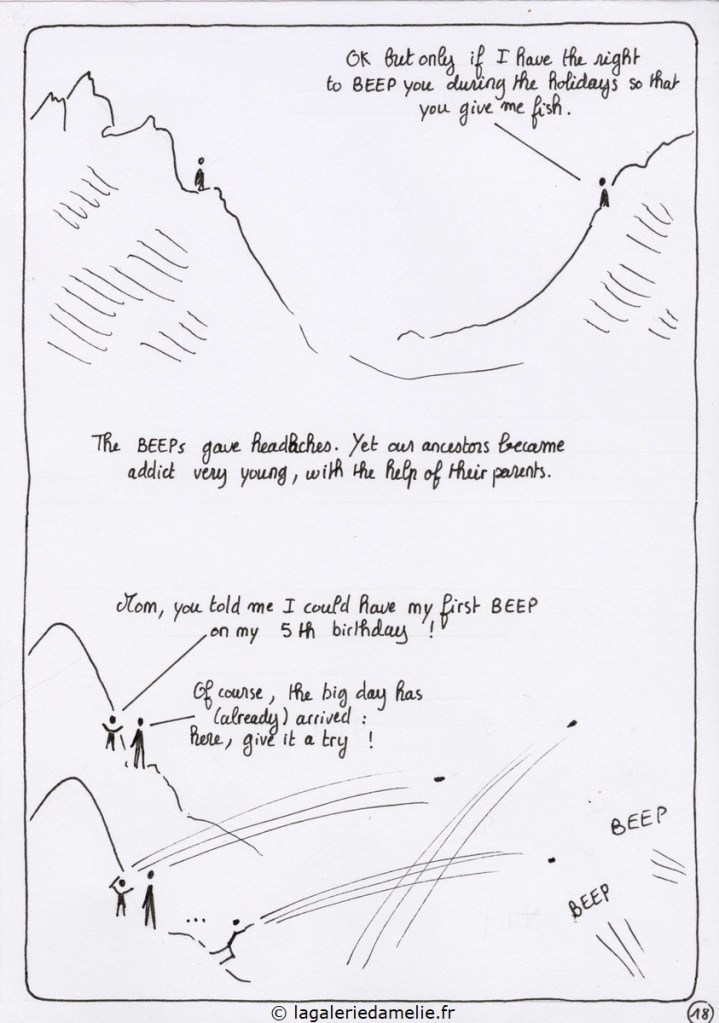 OK but only if I have the right
to BEEP you during the holidays so that
you give me fish.
The BEEPs gave headaches. Yet our ancestors became
addict very young, with the help of their parents.
Mom, you told me I could have my first BEEP
on my 5th birthday !
Of course, the big day has
(already) arrived :
here, give it a try !
BEEP
...
BEEP
© lagaleriedamelie.fr
18